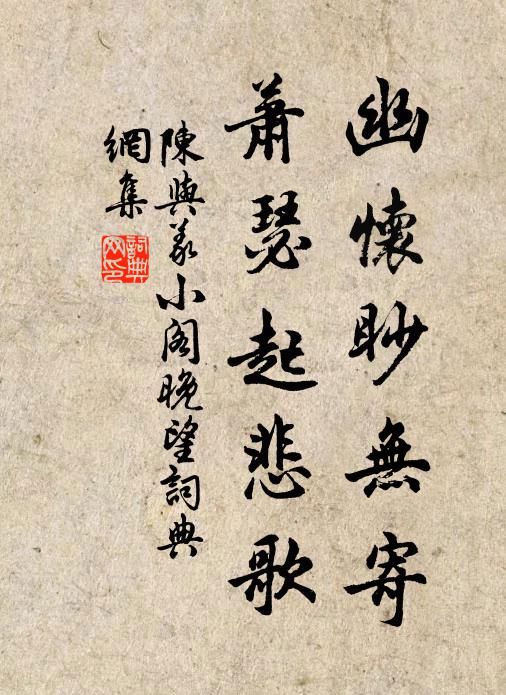 幽懷眇無寄
蕭瑟起悲歌
陳與義小閣晚望詞典
網集
詞典網印